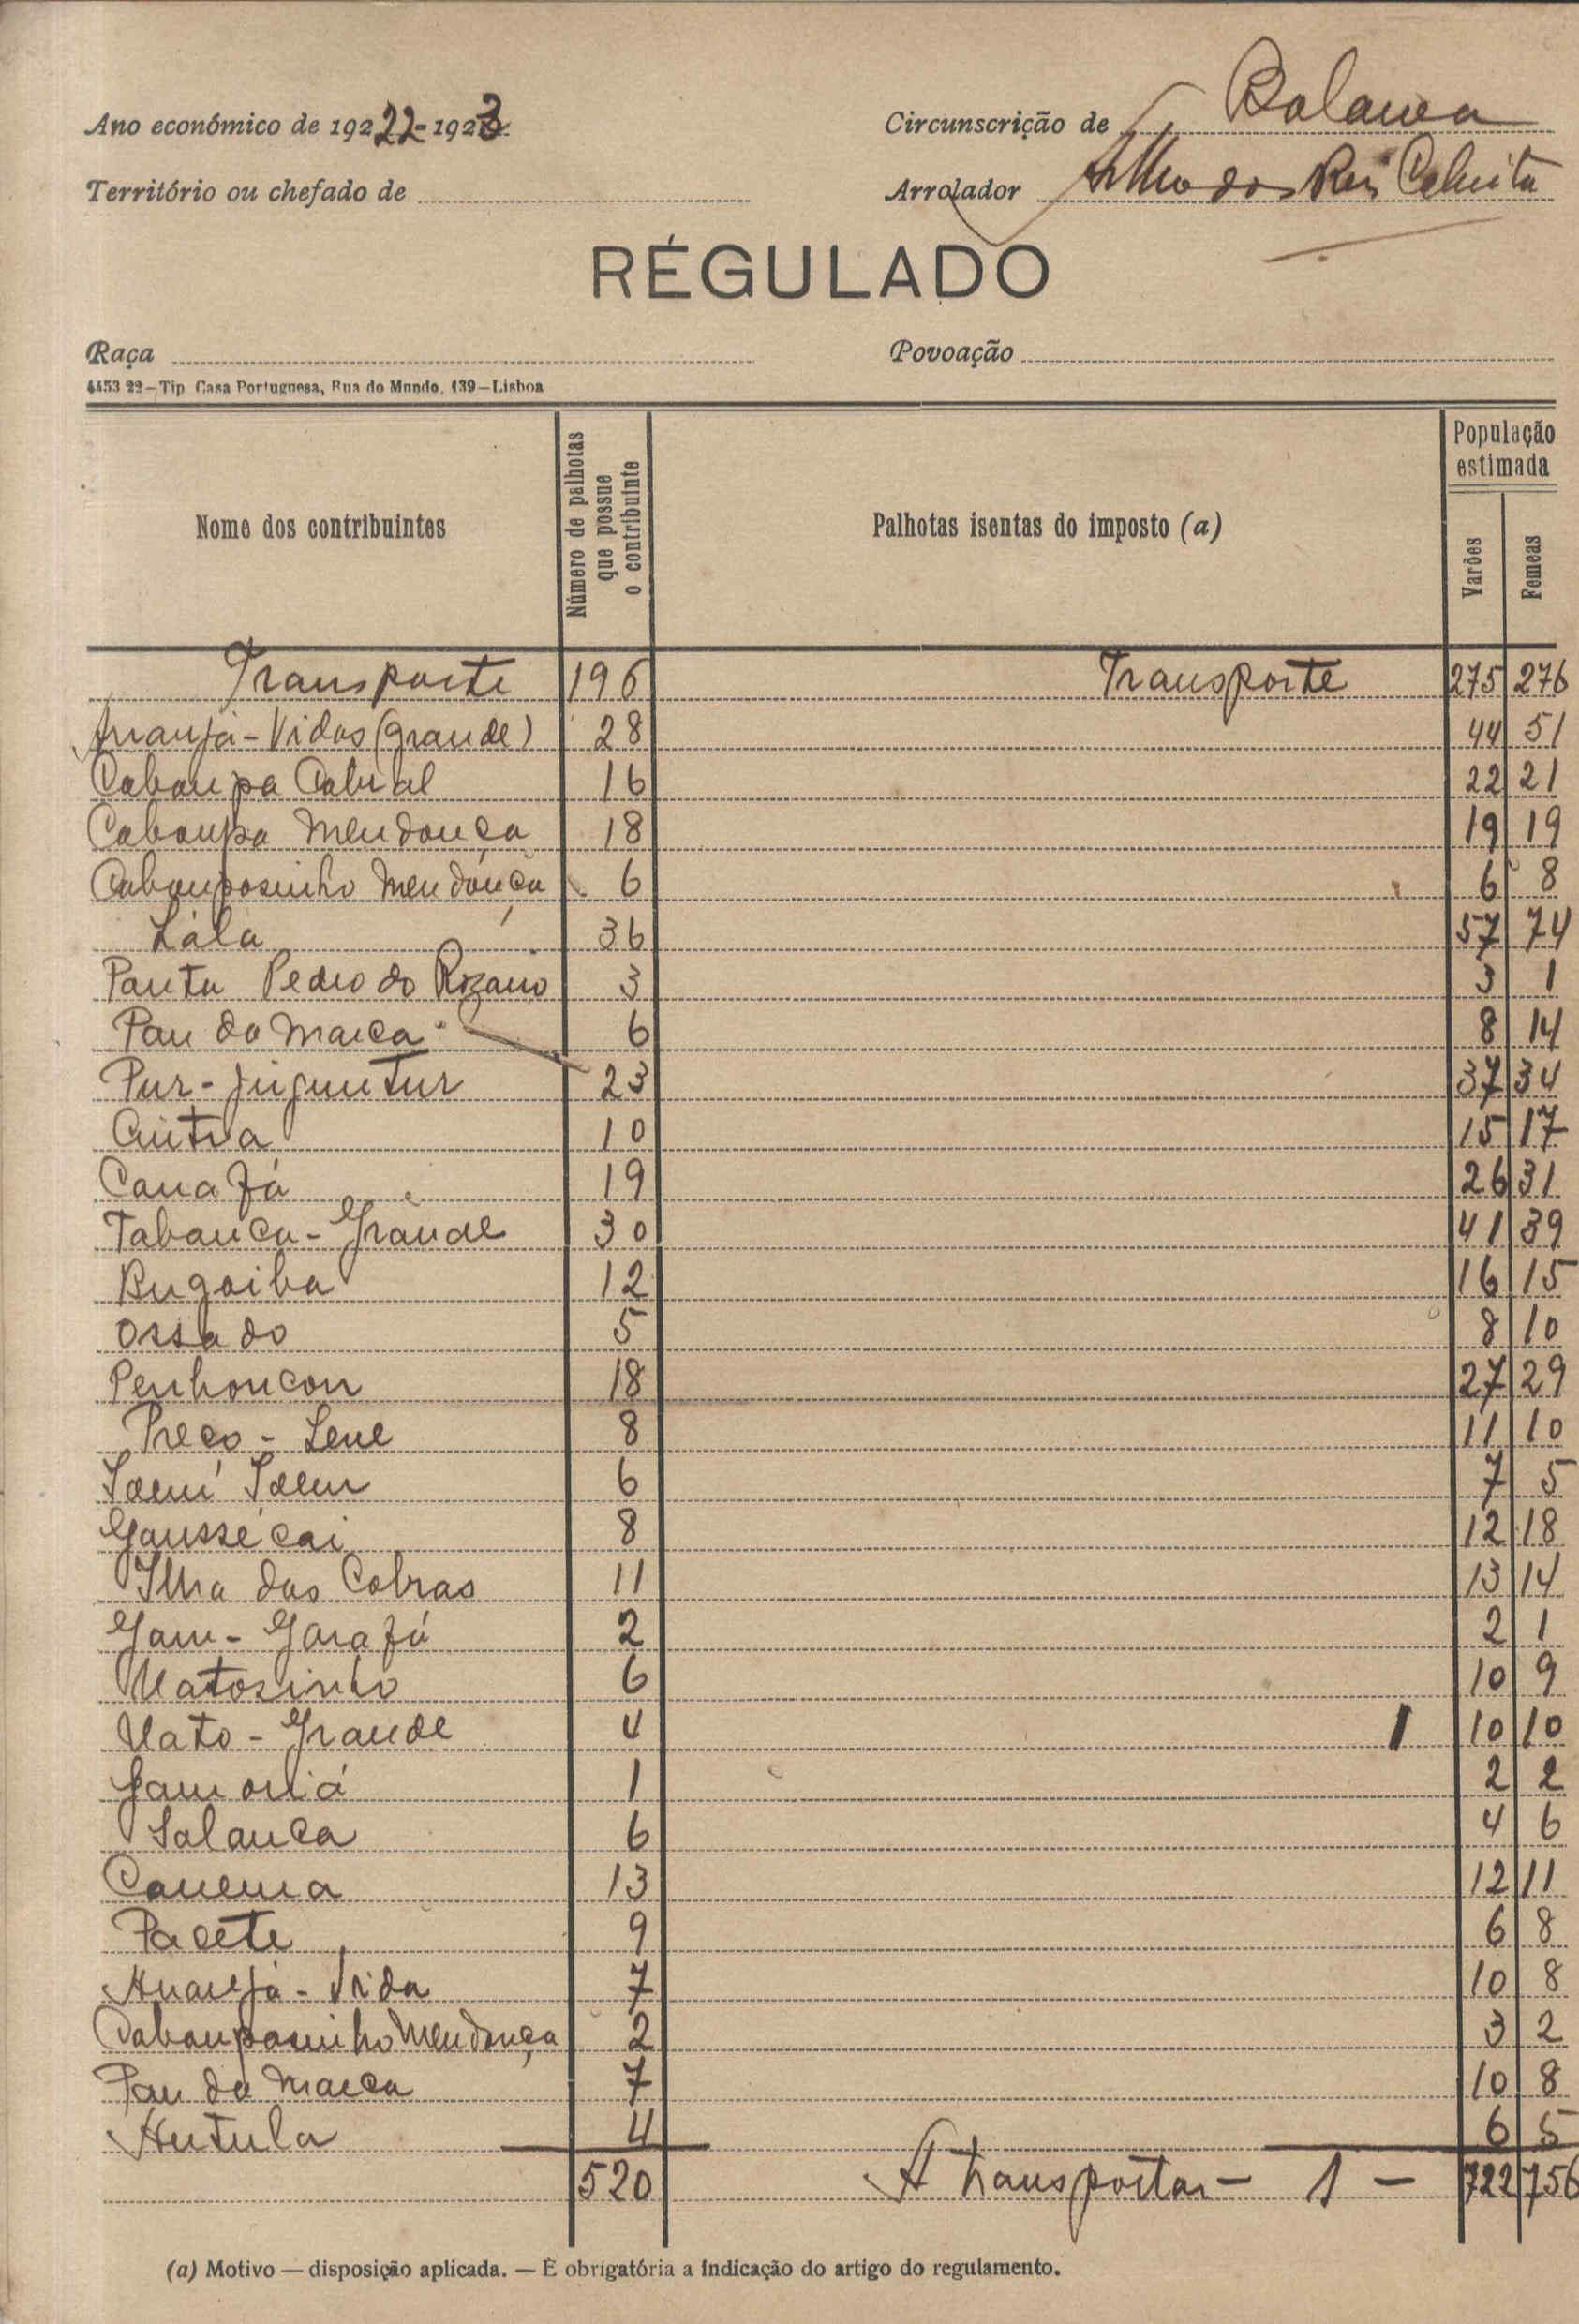 Ano económico de 192 22-1923
Circunscrição de
Território ou chefado de
Arrolador
RÉGULADO
Raça
Povoação
4453 22—Tip Casa Portuguesa, Rua do Mundo, 139—Lisboa
Nome dos contribuintes Número de palhotas que possue o contribuinte Palhotas isentas do imposto (a) População estimada Varões Femeas
Transporte 196 Transporte 275 276
(grande) 28 44 51
Cabral 16 22 21
Mendonça 18 19 19
Mendonça 6 6 8
Lála 36 57 74
Panta Pedro do Rozario 3 3 1
Pau da Marca 6 8 14
Pur- 23 37 34
Cintra 10 15 17
Canafá 19 26 31
Tabanca-Grande 30 41 39
Bugaiba 12 16 15
Ossado 5 8 10
Penhoucon 18 27 29
Preço - Lene 8 11 10
6 7 5
Gaussécai 8 12 18
Ilha das Cobras 11 13 14
Gam - Garafá 2 2 1
Matosinho 6 10 9
Mato - Grande 4 1 10 10
1 2 2
Salanca 6 4 6
Canema 13 12 11
Pacete 9 6 8
7 10 8
Mendonça 2 3 2
Pau da Marca 7 10 8
Antula 4 6 5
520 A transportar - 1 - 722 756
(a) Motivo — disposição aplicada. — E obrigatória a indicação do artigo do regulamento.